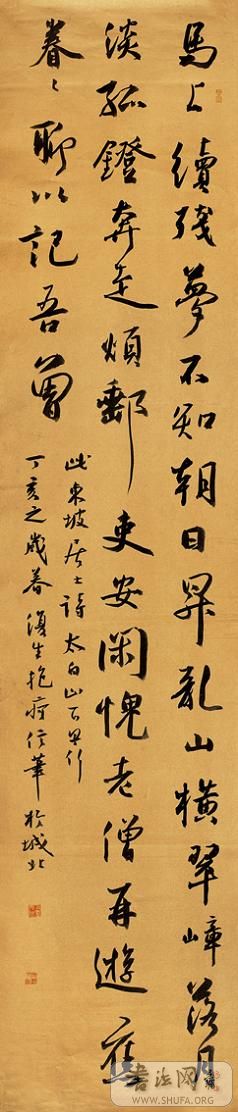 馬上續殘夢不知朝日昇亂山橫翠嶂落月
淡孤鐙奔走煩郵吏安閑愧老僧再遊應
眷〻聊以記吾曾
此東坡居士詩太白山下早行
丁亥之歲暮復生抱疴信筆於城北
書法网
WWW.SHUFA.ORG